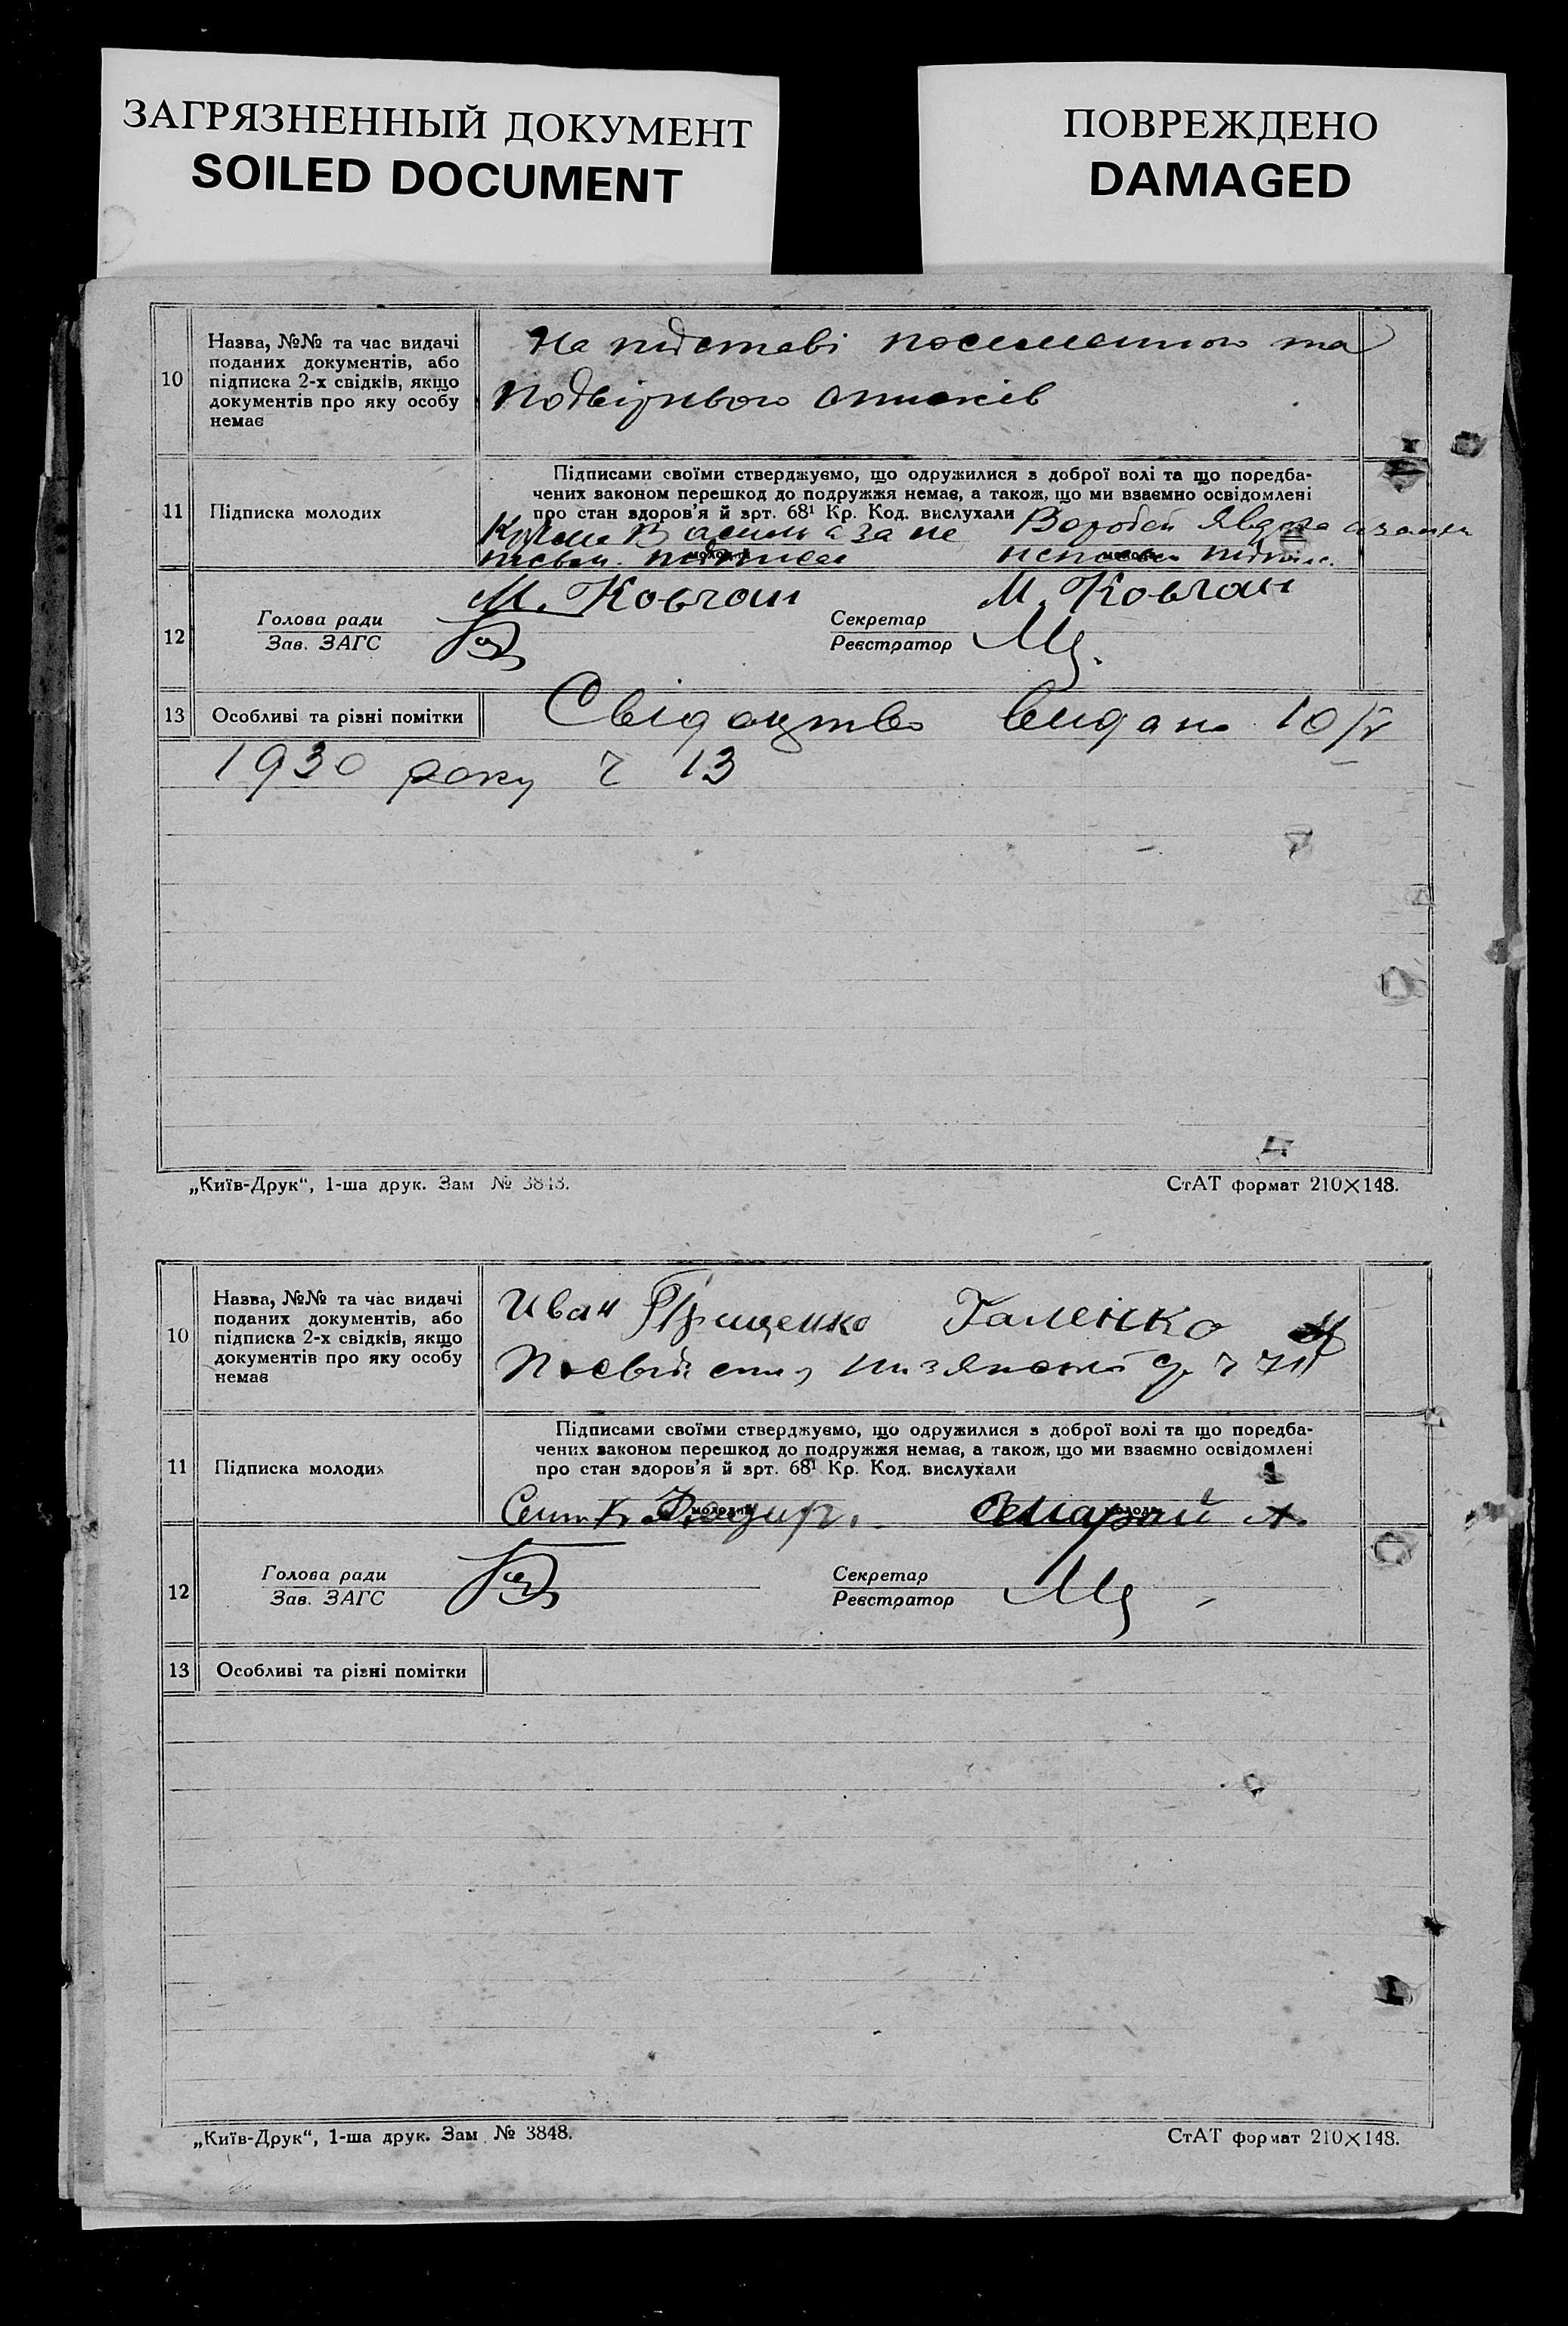 ЗАГРЯЗНЕННЫЙ ДОКУМЕНТ
SOILED DOCUMENT
ПОВРЕЖДЕНО
DAMAGED
10
Назва, №№ та час видачі
поданих документів, або
підписка 2-х свідків, якщо
документів про яку особу
немає
На підставі посімейного та
подвірнього списків
11
Підписка молодих
Підписами своїми стверджуємо, що одружилися з доброї волі та що поредба-
чених законом перешкод до подружжя немає, а також, що ми взаємно освідомлені
про стан здоров'я й зрт. 68¹ Кр. Код. вислухали
Василь а за не
Воробей Явдоха а за
молодий
молода
М. Ковган
М. Ковган
12
Голова ради
Зав. ЗАГС
Секретар
Реєстратор
13
Особливі та різні помітки
Свідоцтво видано 10/V
1930 року ч 13
„Київ-Друк“, 1-ша друк. Зам № 3848.
СтАТ формат 210×148.
10
Назва, №№ та час видачі
поданих документів, або
підписка 2-х свідків, якщо
документів про яку особу
немає
Иван Грищенко Галенко
11
Підписка молодих
Підписами своїми стверджуємо, що одружилися з доброї волі та що поредба-
чених законом перешкод до подружжя немає, а також, що ми взаємно освідомлені
про стан здоров'я й зрт. 68¹ Кр. Код. вислухали
молодий
молода
12
Голова ради
Зав. ЗАГС
Секретар
Реєстратор
13
Особливі та різні помітки
„Київ-Друк“, 1-ша друк. Зам. № 3848.
СтАТ формат 210×148.